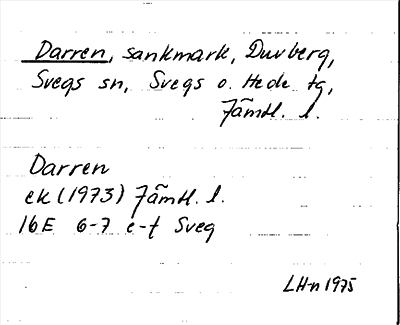 Darren, sankmark, Duvberg,
Svegs sn, Svegs o. Hede tg,
Jämtl. l.
Darren
ek (1973) Jämtl. l.
16E 6-7 e-f Sveg
LHn 1975